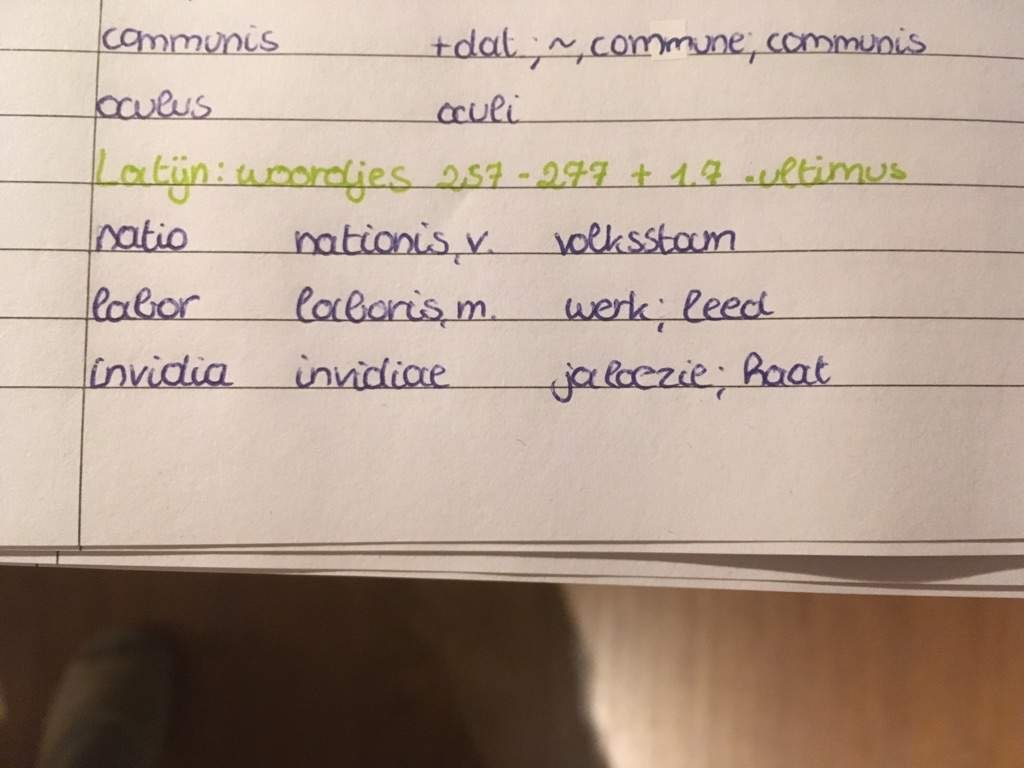 communis +dat; ~, commune, communis
oculus oculi
Latijn: woordjes 257 - 277 + 1.7 . ultimus
natio nationis, v. volksstam
labor laboris, m. werk; leed
invidia invidiae jaloezie; haat